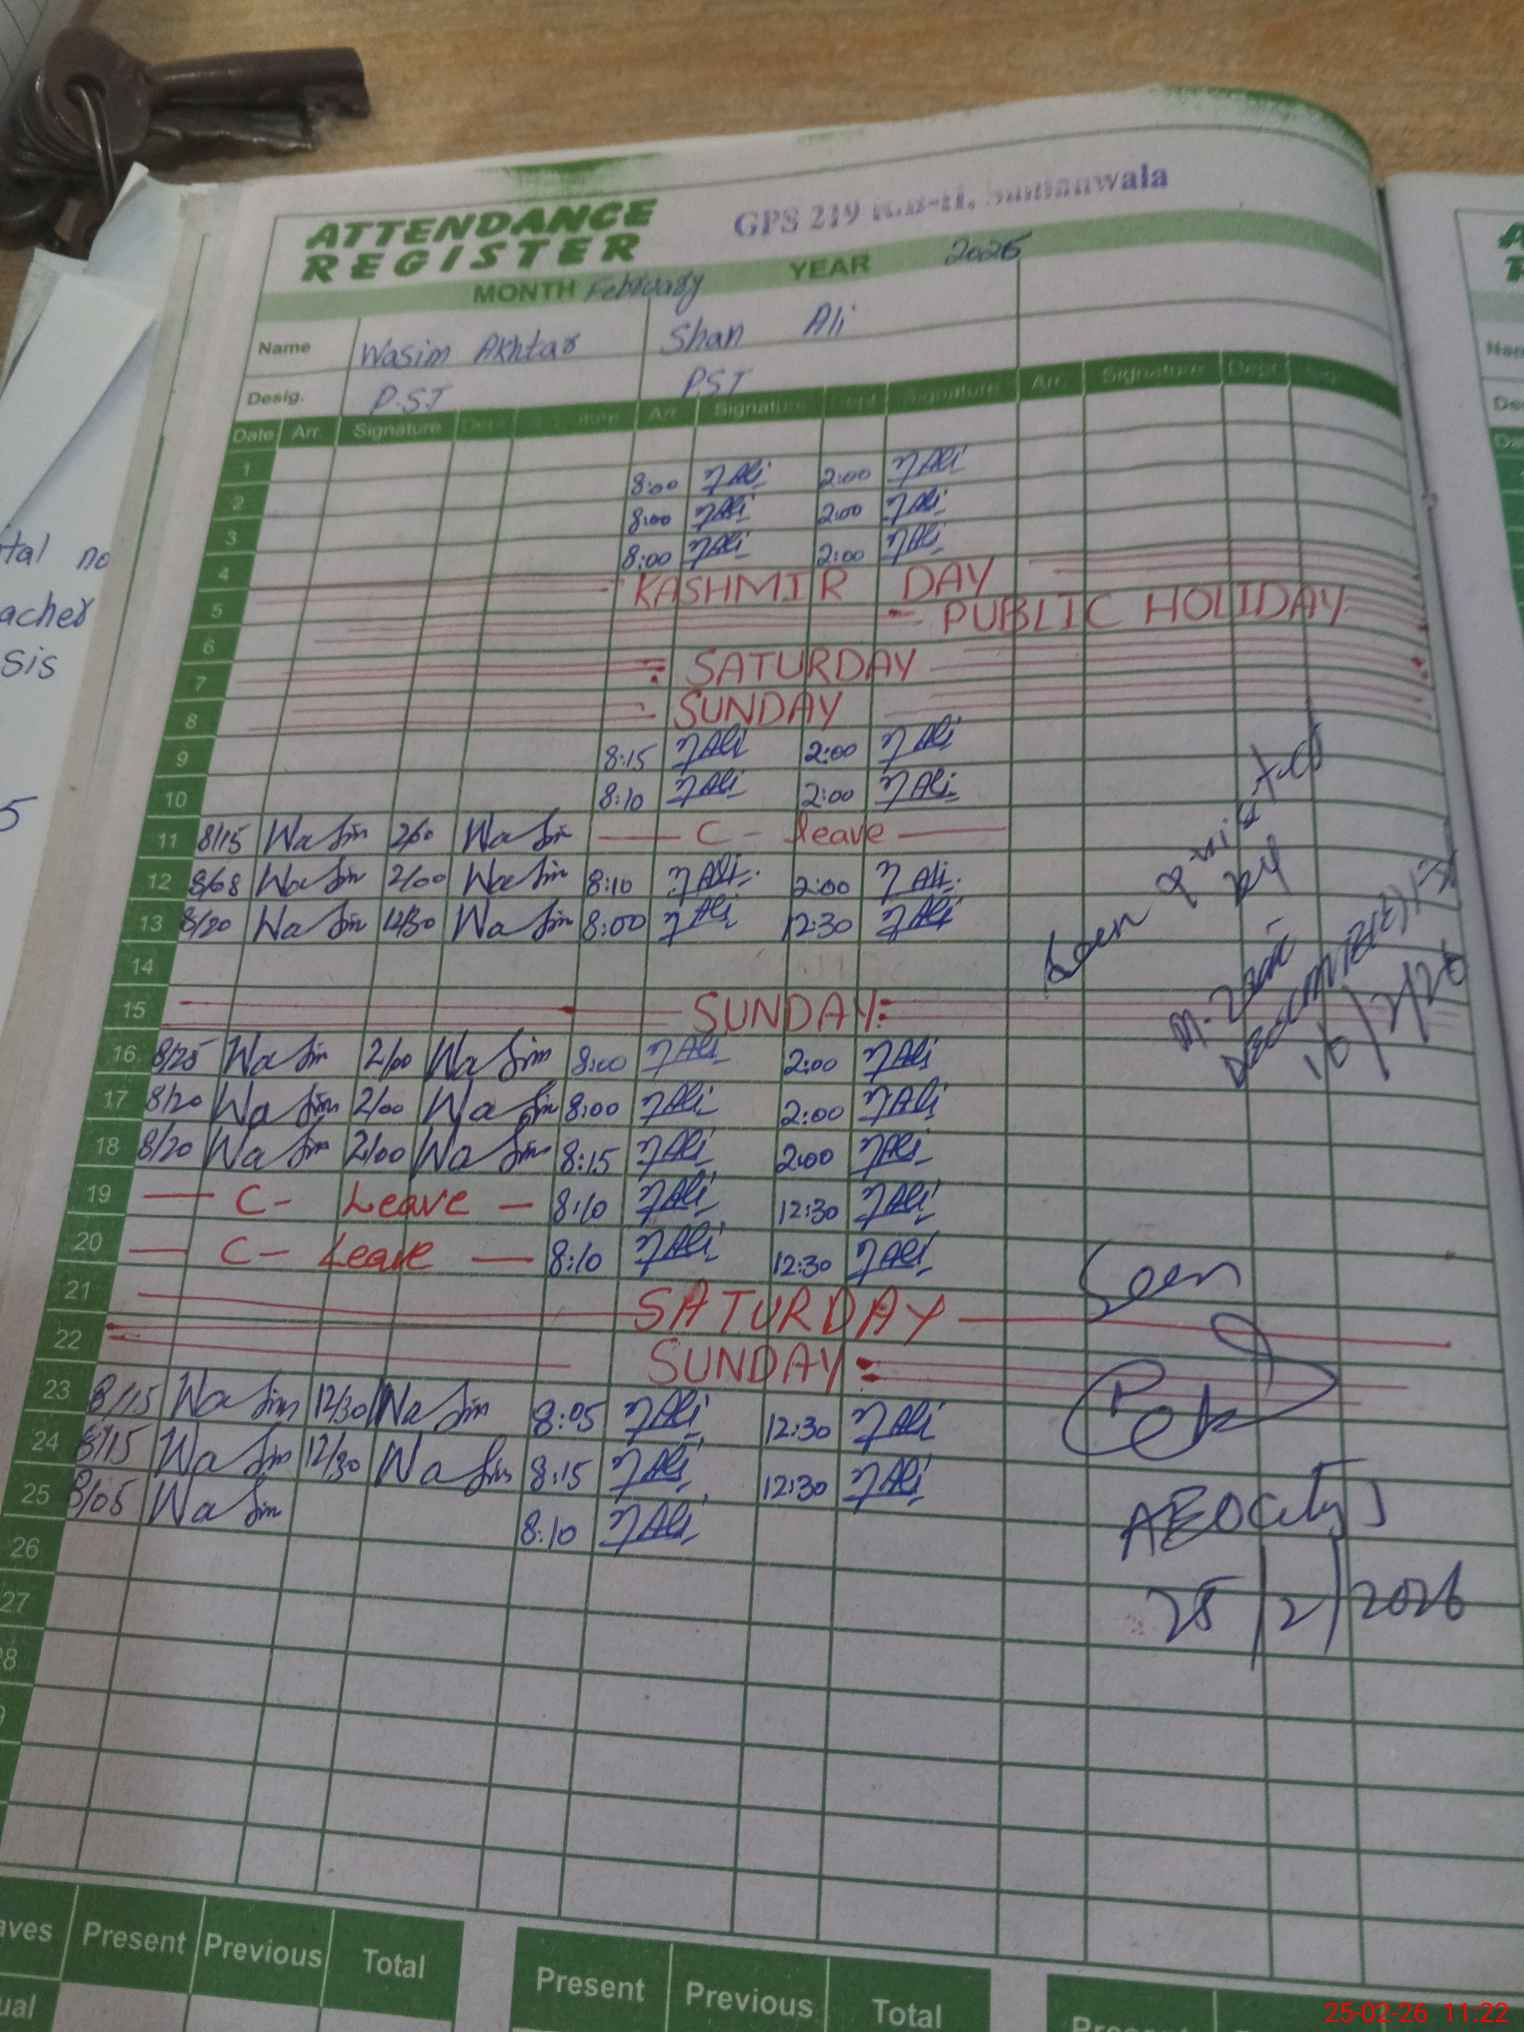 ATTENDANCE
REGISTER
GPS 219
MONTH February YEAR 2026
Name Wasim Akhtar Shan Ali
Desig. P.S.T P.S.T
Date Arr. Signature Arr. Signature Dept Signature Arr. Signature Dept
1
2 8:00 Ali 2:00 Ali
3 8:00 Ali 2:00 Ali
4 8:00 Ali 2:00 Ali
5 KASHMIR DAY
- PUBLIC HOLIDAY
6
7 SATURDAY
8 SUNDAY
9 8:15 Ali 2:00 Ali
10 8:10 Ali 2:00 Ali
11 8/15 Wasim 2/00 Wasim C - leave
12 8/08 Wasim 2/00 Wasim 8:10 Ali 2:00 Ali
13 8/20 Wasim 12/30 Wasim 8:00 Ali 12:30 Ali
14
15 SUNDAY
16 8/25 Wasim 2/00 Wasim 8:00 Ali 2:00 Ali
17 8/20 Wasim 2/00 Wasim 8:00 Ali 2:00 Ali
18 8/20 Wasim 2/00 Wasim 8:15 Ali 2:00 Ali
19 C- Leave 8:10 Ali 12:30 Ali
20 C- Leave 8:10 Ali 12:30 Ali
21 SATURDAY
22 SUNDAY
23 8/15 Wasim 12/30 Wasim 8:05 Ali 12:30 Ali
24 8/15 Wasim 12/30 Wasim 8:15 Ali 12:30 Ali
25 8/05 Wasim 8:10 Ali
26
27
Seen
by
16/2/26
Seen
25/2/2026
Present Previous Total
Present Previous Total
tal no
acher
sis
5
25-02-26 11:22